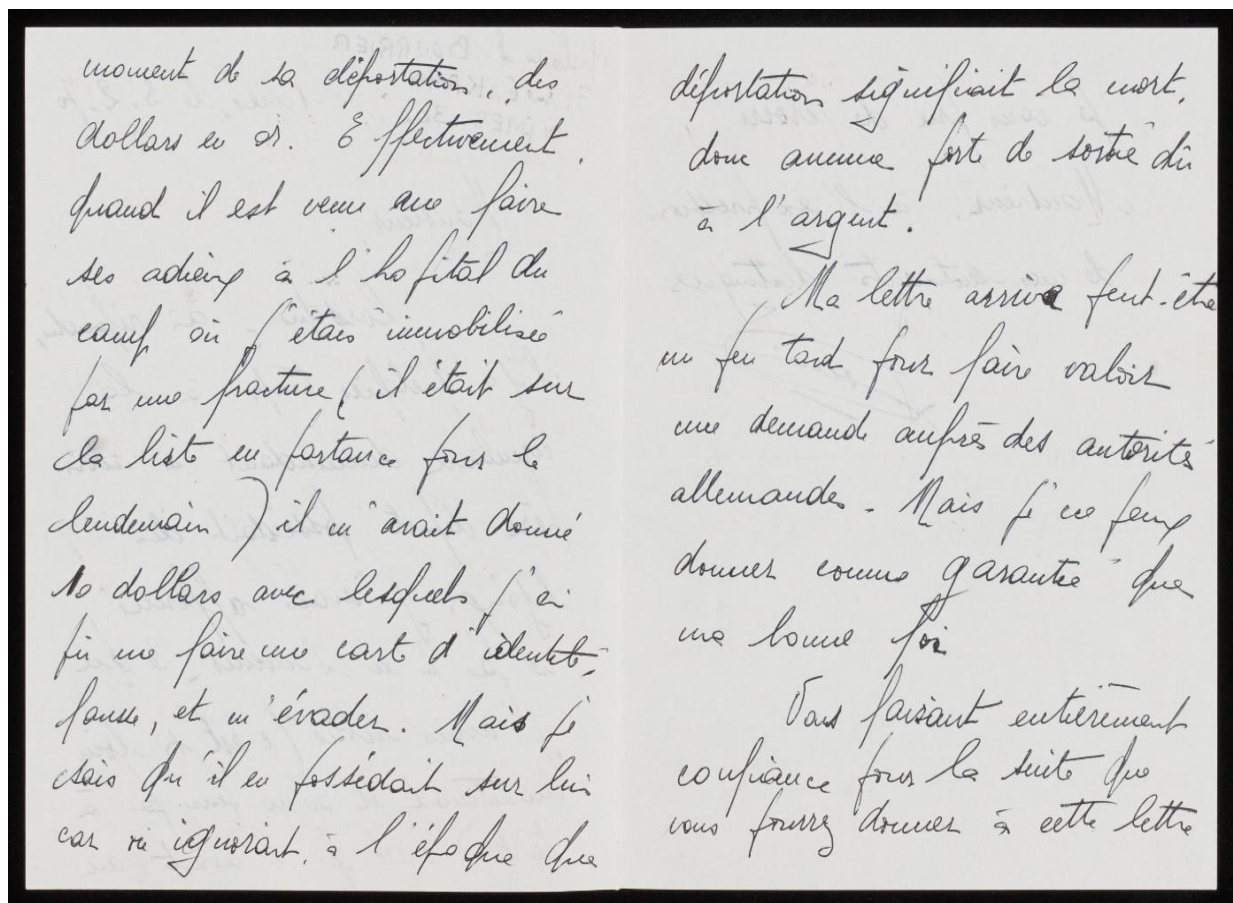 moment de sa déportation, des
dollars en or. Effectivement,
quand il est venu me faire
ses adieux à l'hopital du
camp où j'étais immobilisée
par une fracture (il était sur
la liste en partance pour le
lendemain) il m'avait donné
10 dollars avec lesquels j'ai
pu me faire une carte d'identité
fausse, et m'évader. Mais je
sais qu'il en possédait sur lui
car on ignorait, à l'époque que
déportation signifiait la mort,
donc aucune porte de sortie dû
à l'argent.
Ma lettre arriva peut-être
un peu tard pour faire valoir
une demande auprès des autorités
allemandes. Mais je ne peux
donner comme garantie que
ma bonne foi
Vous faisant entièrement
confiance pour la suite que
vous pourrez donner à cette lettre